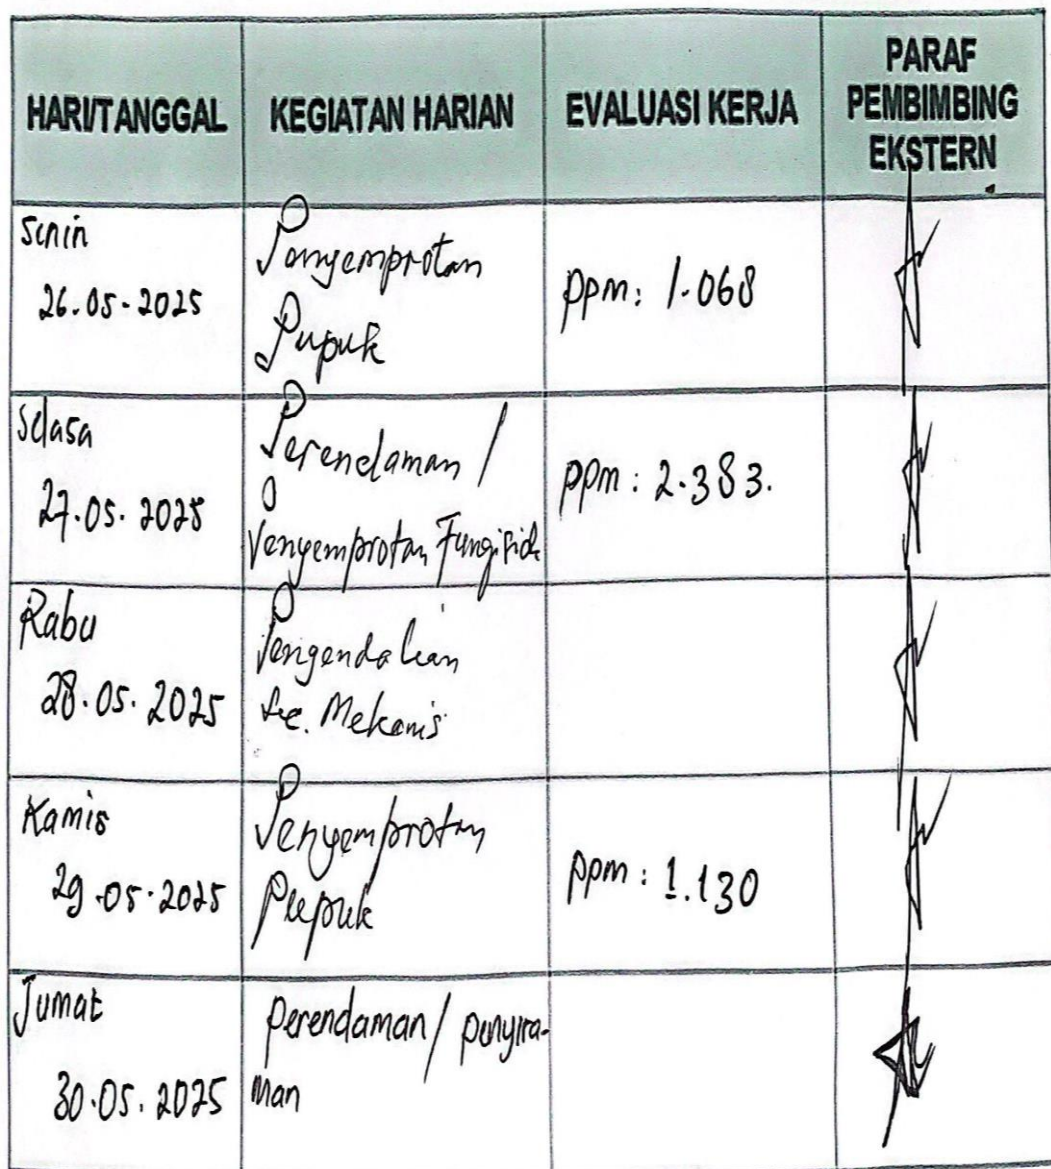 HARI/TANGGAL
KEGIATAN HARIAN
EVALUASI KERJA
PARAF
PEMBIMBING
EKSTERN
Senin
26.05-2025
Penyemprotan
Pupuk
ppm: 1.068
Selasa
27.05.2025
Perendaman /
Penyemprotan Fungisida
ppm: 2.383.
Rabu
28.05.2025
Pengendalian
Sec. Mekanis
Kamis
29.05.2025
Penyemprotan
Pupuk
ppm: 1.130
Jumat
30.05.2025
Perendaman/ penyira-
man